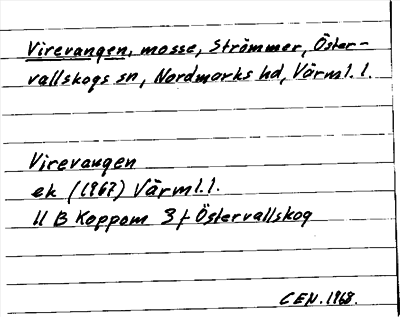 Virevangen, mosse, Strömmer, Öster-
vallskogs sn, Nordmarks hd, Värml. l.
Virevangen
ek (1967) Värml. l.
11 B Koppom 3 f Östervallskog
CEN. 1968.